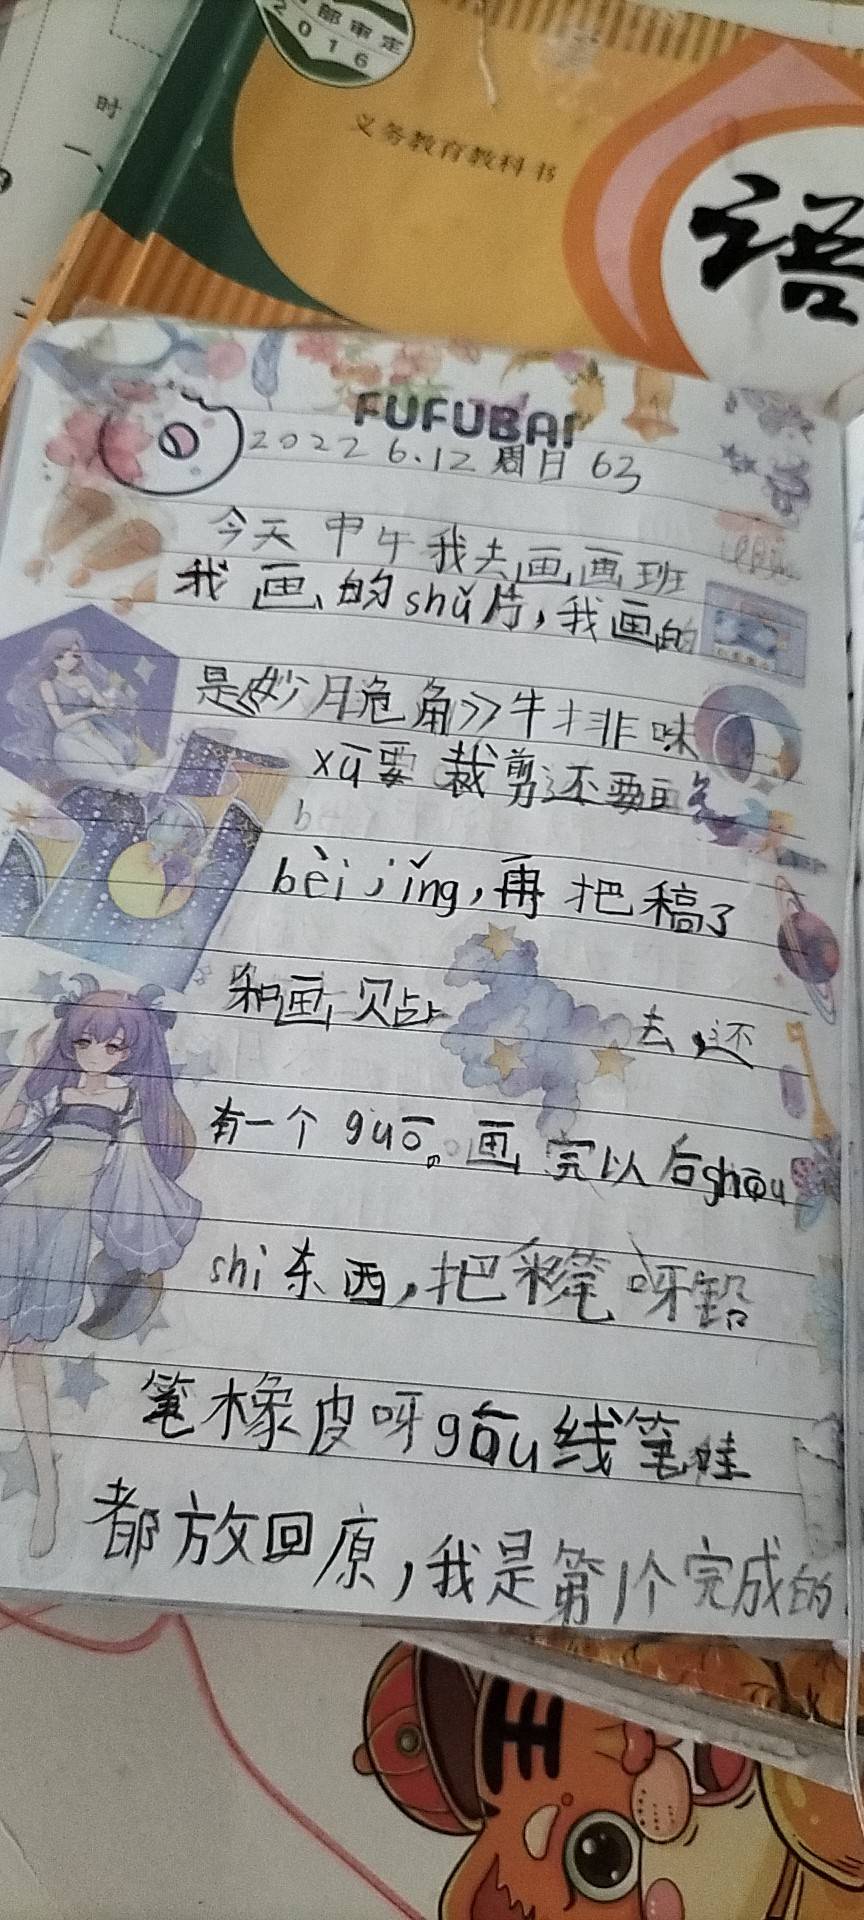 部审定
2016
时
一、
义务教育教科书
语
二
FUFUBAI
2022 6.12 周日 63
今天 中午我去画画班
我画的shǔ片，我画的
是《妙月危角》牛排味
xū要裁剪还要画
bèi jǐng，再把稿了
和画贴 去，还
有一个guō。画完以后shōu
shi东西，把彩笔呀铅
笔橡皮呀gōu线笔哇
都放回原，我是第1个完成的
王